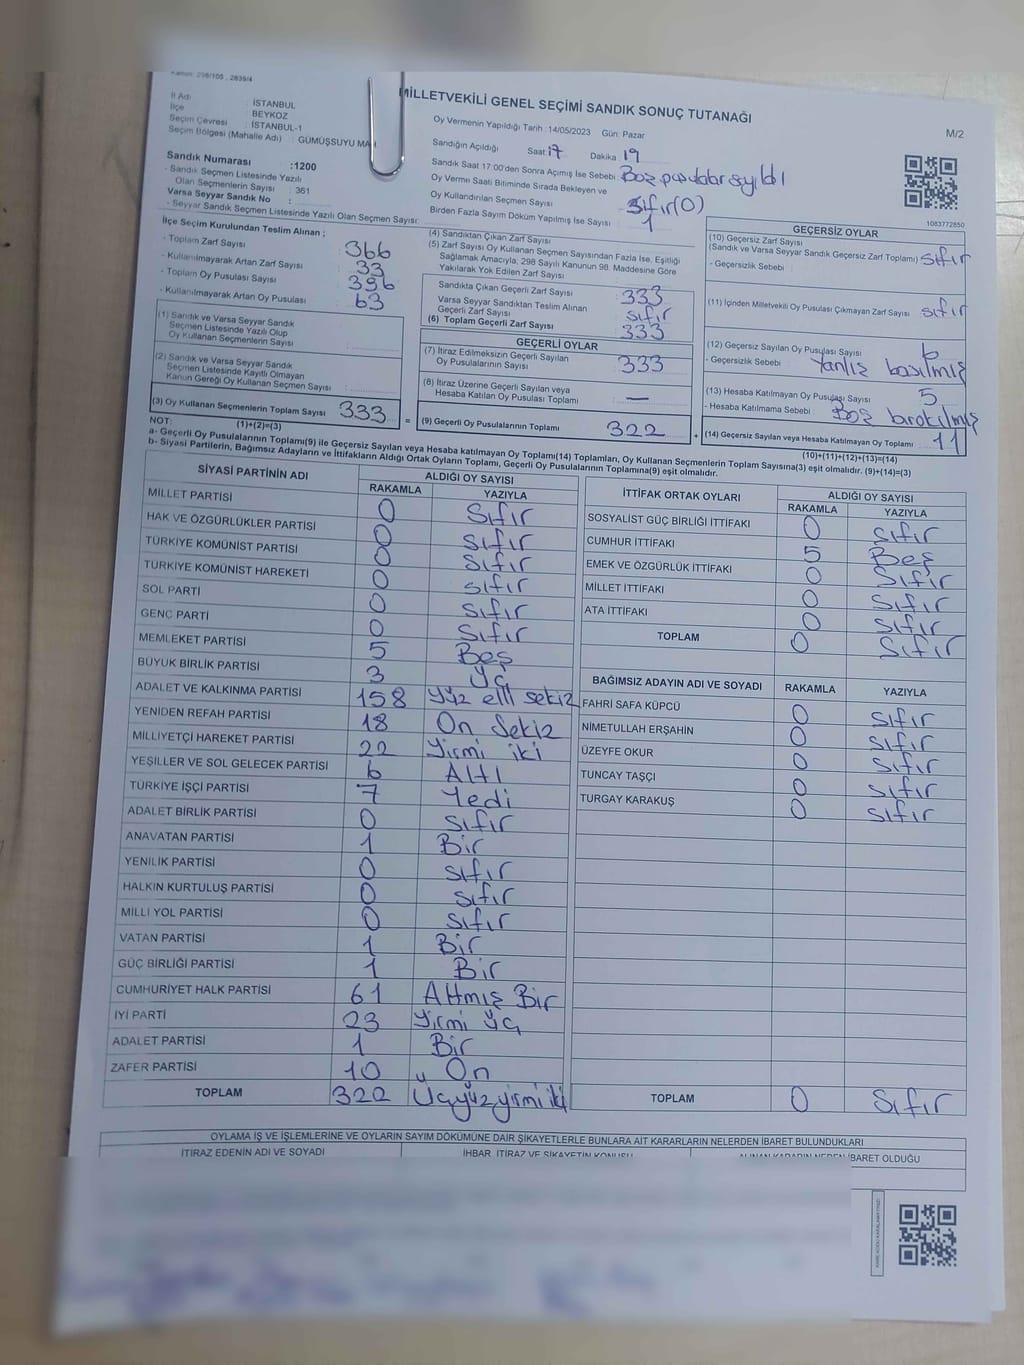 Kanun: 298/105 , 2839/4
MİLLETVEKİLİ GENEL SEÇİMİ SANDIK SONUÇ TUTANAĞI
M/2
İl Adı : İSTANBUL
İlçe : BEYKOZ
Seçim Çevresi : İSTANBUL-1
Seçim Bölgesi (Mahalle Adı) : GÜMÜŞSUYU MA
Oy Vermenin Yapıldığı Tarih : 14/05/2023 Gün: Pazar
Sandığın Açıldığı Saat 17 Dakika 19
Sandık Saat 17:00'den Sonra Açımış İse Sebebi Boş pusulalar sayıldı
Oy Verme Saati Bitiminde Sırada Bekleyen ve
Oy Kullandırılan Seçmen Sayısı Sıfır(0)
Birden Fazla Sayım Döküm Yapılmış İse Sayısı : 1
Sandık Numarası :1200
- Sandık Seçmen Listesinde Yazılı
Olan Seçmenlerin Sayısı : 361
Varsa Seyyar Sandık No :
- Seyyar Sandık Seçmen Listesinde Yazılı Olan Seçmen Sayısı:
1083772850
İlçe Seçim Kurulundan Teslim Alınan ;
- Toplam Zarf Sayısı : 366
- Kullanılmayarak Artan Zarf Sayısı : 33
- Toplam Oy Pusulası Sayısı : 396
- Kullanılmayarak Artan Oy Pusulası : 63
(1) Sandık ve Varsa Seyyar Sandık
Seçmen Listesinde Yazılı Olup
Oy Kullanan Seçmenlerin Sayısı :
(2) Sandık ve Varsa Seyyar Sandık
Seçmen Listesinde Kayıtlı Olmayan
Kanun Gereği Oy Kullanan Seçmen Sayısı :
(3) Oy Kullanan Seçmenlerin Toplam Sayısı : 333
(1)+(2)=(3)
(4) Sandıktan Çıkan Zarf Sayısı
(5) Zarf Sayısı Oy Kullanan Seçmen Sayısından Fazla İse, Eşitliği
Sağlamak Amacıyla, 298 Sayılı Kanunun 98. Maddesine Göre
Yakılarak Yok Edilen Zarf Sayısı
Sandıkta Çıkan Geçerli Zarf Sayısı : 333
Varsa Seyyar Sandıktan Teslim Alınan
Geçerli Zarf Sayısı : Sıfır
(6) Toplam Geçerli Zarf Sayısı : 333
GEÇERLİ OYLAR
(7) İtiraz Edilmeksizin Geçerli Sayılan
Oy Pusulalarının Sayısı : 333
(8) İtiraz Üzerine Geçerli Sayılan veya
Hesaba Katılan Oy Pusulası Toplamı : —
= (9) Geçerli Oy Pusulalarının Toplamı : 322 +
GEÇERSİZ OYLAR
(10) Geçersiz Zarf Sayısı
(Sandık ve Varsa Seyyar Sandık Geçersiz Zarf Toplamı) : sıfır
- Geçersizlik Sebebi
(11) İçinden Milletvekili Oy Pusulası Çıkmayan Zarf Sayısı : sıfır
(12) Geçersiz Sayılan Oy Pusulası Sayısı : 6
- Geçersizlik Sebebi : Yanlız basılmış
(13) Hesaba Katılmayan Oy Pusulası Sayısı : 5
- Hesaba Katılmama Sebebi : Boş bırakılmış
(14) Geçersiz Sayılan veya Hesaba Katılmayan Oy Toplamı : 11
(10)+(11)+(12)+(13)=(14)
NOT:
a- Geçerli Oy Pusulalarının Toplamı(9) ile Geçersiz Sayılan veya Hesaba katılmayan Oy Toplamı(14) Toplamları, Oy Kullanan Seçmenlerin Toplam Sayısına(3) eşit olmalıdır. (9)+(14)=(3)
b- Siyasi Partilerin, Bağımsız Adayların ve İttifakların Aldığı Ortak Oyların Toplamı, Geçerli Oy Pusulalarının Toplamına(9) eşit olmalıdır.
SİYASİ PARTİNİN ADI ALDIĞI OY SAYISI
RAKAMLA YAZIYLA
MİLLET PARTİSİ 0 Sıfır
HAK VE ÖZGÜRLÜKLER PARTİSİ 0 Sıfır
TÜRKİYE KOMÜNİST PARTİSİ 0 Sıfır
TÜRKİYE KOMÜNİST HAREKETİ 0 sıfır
SOL PARTİ 0 Sıfır
GENÇ PARTİ 0 Sıfır
MEMLEKET PARTİSİ 5 Beş
BÜYÜK BİRLİK PARTİSİ 3 Üç
ADALET VE KALKINMA PARTİSİ 158 Yüz elli sekiz
YENİDEN REFAH PARTİSİ 18 On Sekiz
MİLLİYETÇİ HAREKET PARTİSİ 22 Yirmi iki
YEŞİLLER VE SOL GELECEK PARTİSİ 6 Altı
TÜRKİYE İŞÇİ PARTİSİ 7 Yedi
ADALET BİRLİK PARTİSİ 0 sıfır
ANAVATAN PARTİSİ 1 Bir
YENİLİK PARTİSİ 0 sıfır
HALKIN KURTULUŞ PARTİSİ 0 sıfır
MİLLİ YOL PARTİSİ 0 sıfır
VATAN PARTİSİ 1 Bir
GÜÇ BİRLİĞİ PARTİSİ 1 Bir
CUMHURİYET HALK PARTİSİ 61 Altmış Bir
İYİ PARTİ 23 Yirmi Üç
ADALET PARTİSİ 1 Bir
ZAFER PARTİSİ 10 On
TOPLAM 322 Üçyüzyirmi iki
İTTİFAK ORTAK OYLARI ALDIĞI OY SAYISI
RAKAMLA YAZIYLA
SOSYALİST GÜÇ BİRLİĞİ İTTİFAKI 0 sıfır
CUMHUR İTTİFAKI 5 Beş
EMEK VE ÖZGÜRLÜK İTTİFAKI 0 Sıfır
MİLLET İTTİFAKI 0 Sıfır
ATA İTTİFAKI 0 sıfır
TOPLAM 0 Sıfır
BAĞIMSIZ ADAYIN ADI VE SOYADI RAKAMLA YAZIYLA
FAHRİ SAFA KÜPCÜ 0 sıfır
NİMETULLAH ERŞAHİN 0 sıfır
ÜZEYFE OKUR 0 sıfır
TUNCAY TAŞÇI 0 sıfır
TURGAY KARAKUŞ 0 sıfır
TOPLAM 0 Sıfır
OYLAMA İŞ VE İŞLEMLERİNE VE OYLARIN SAYIM DÖKÜMÜNE DAİR ŞİKAYETLERLE BUNLARA AİT KARARLARIN NELERDEN İBARET BULUNDUKLARI
İTİRAZ EDENİN ADI VE SOYADI İHBAR, İTİRAZ VE ŞİKAYETİN KONUSU ALINAN KARARIN NEDEN İBARET OLDUĞU